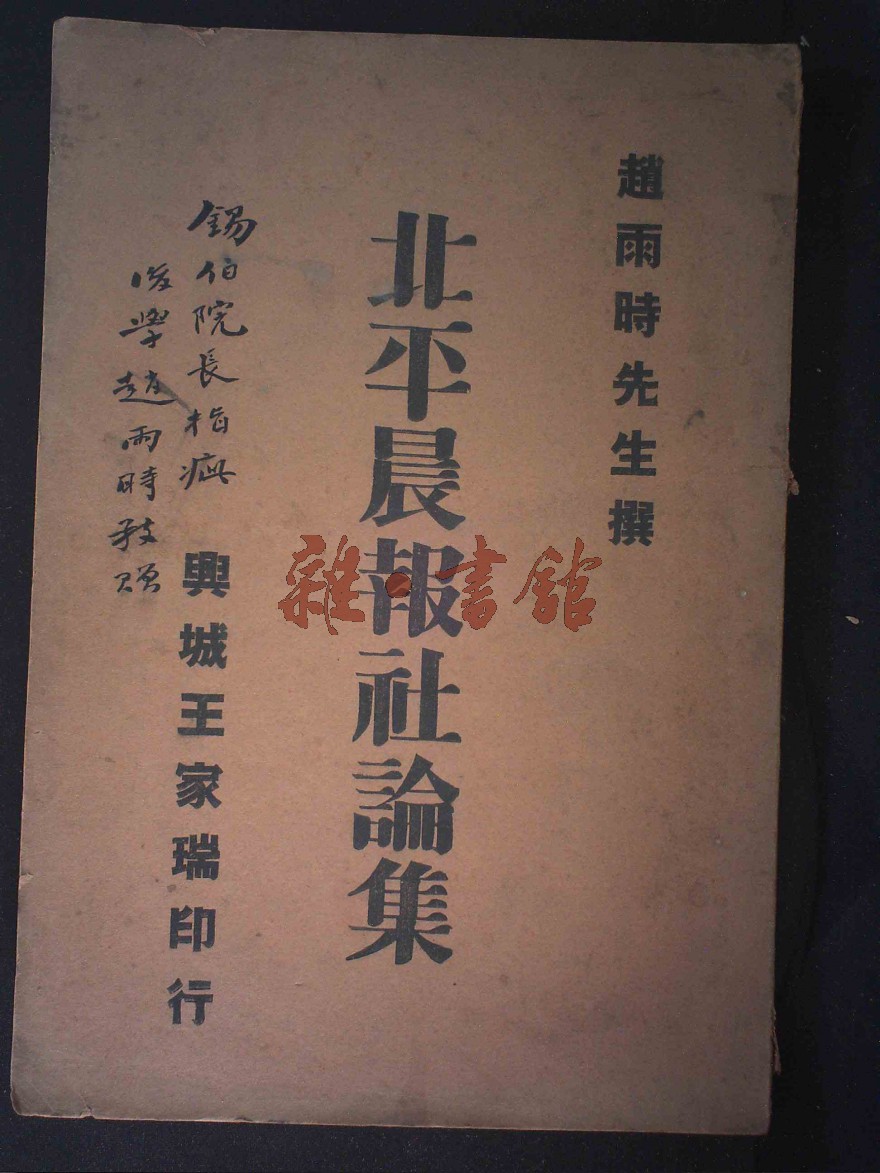 趙雨時先生撰
北平晨報社論集
錫伯院長指疵
後學趙雨時敬贈
興城王家瑞印行
雜·書館